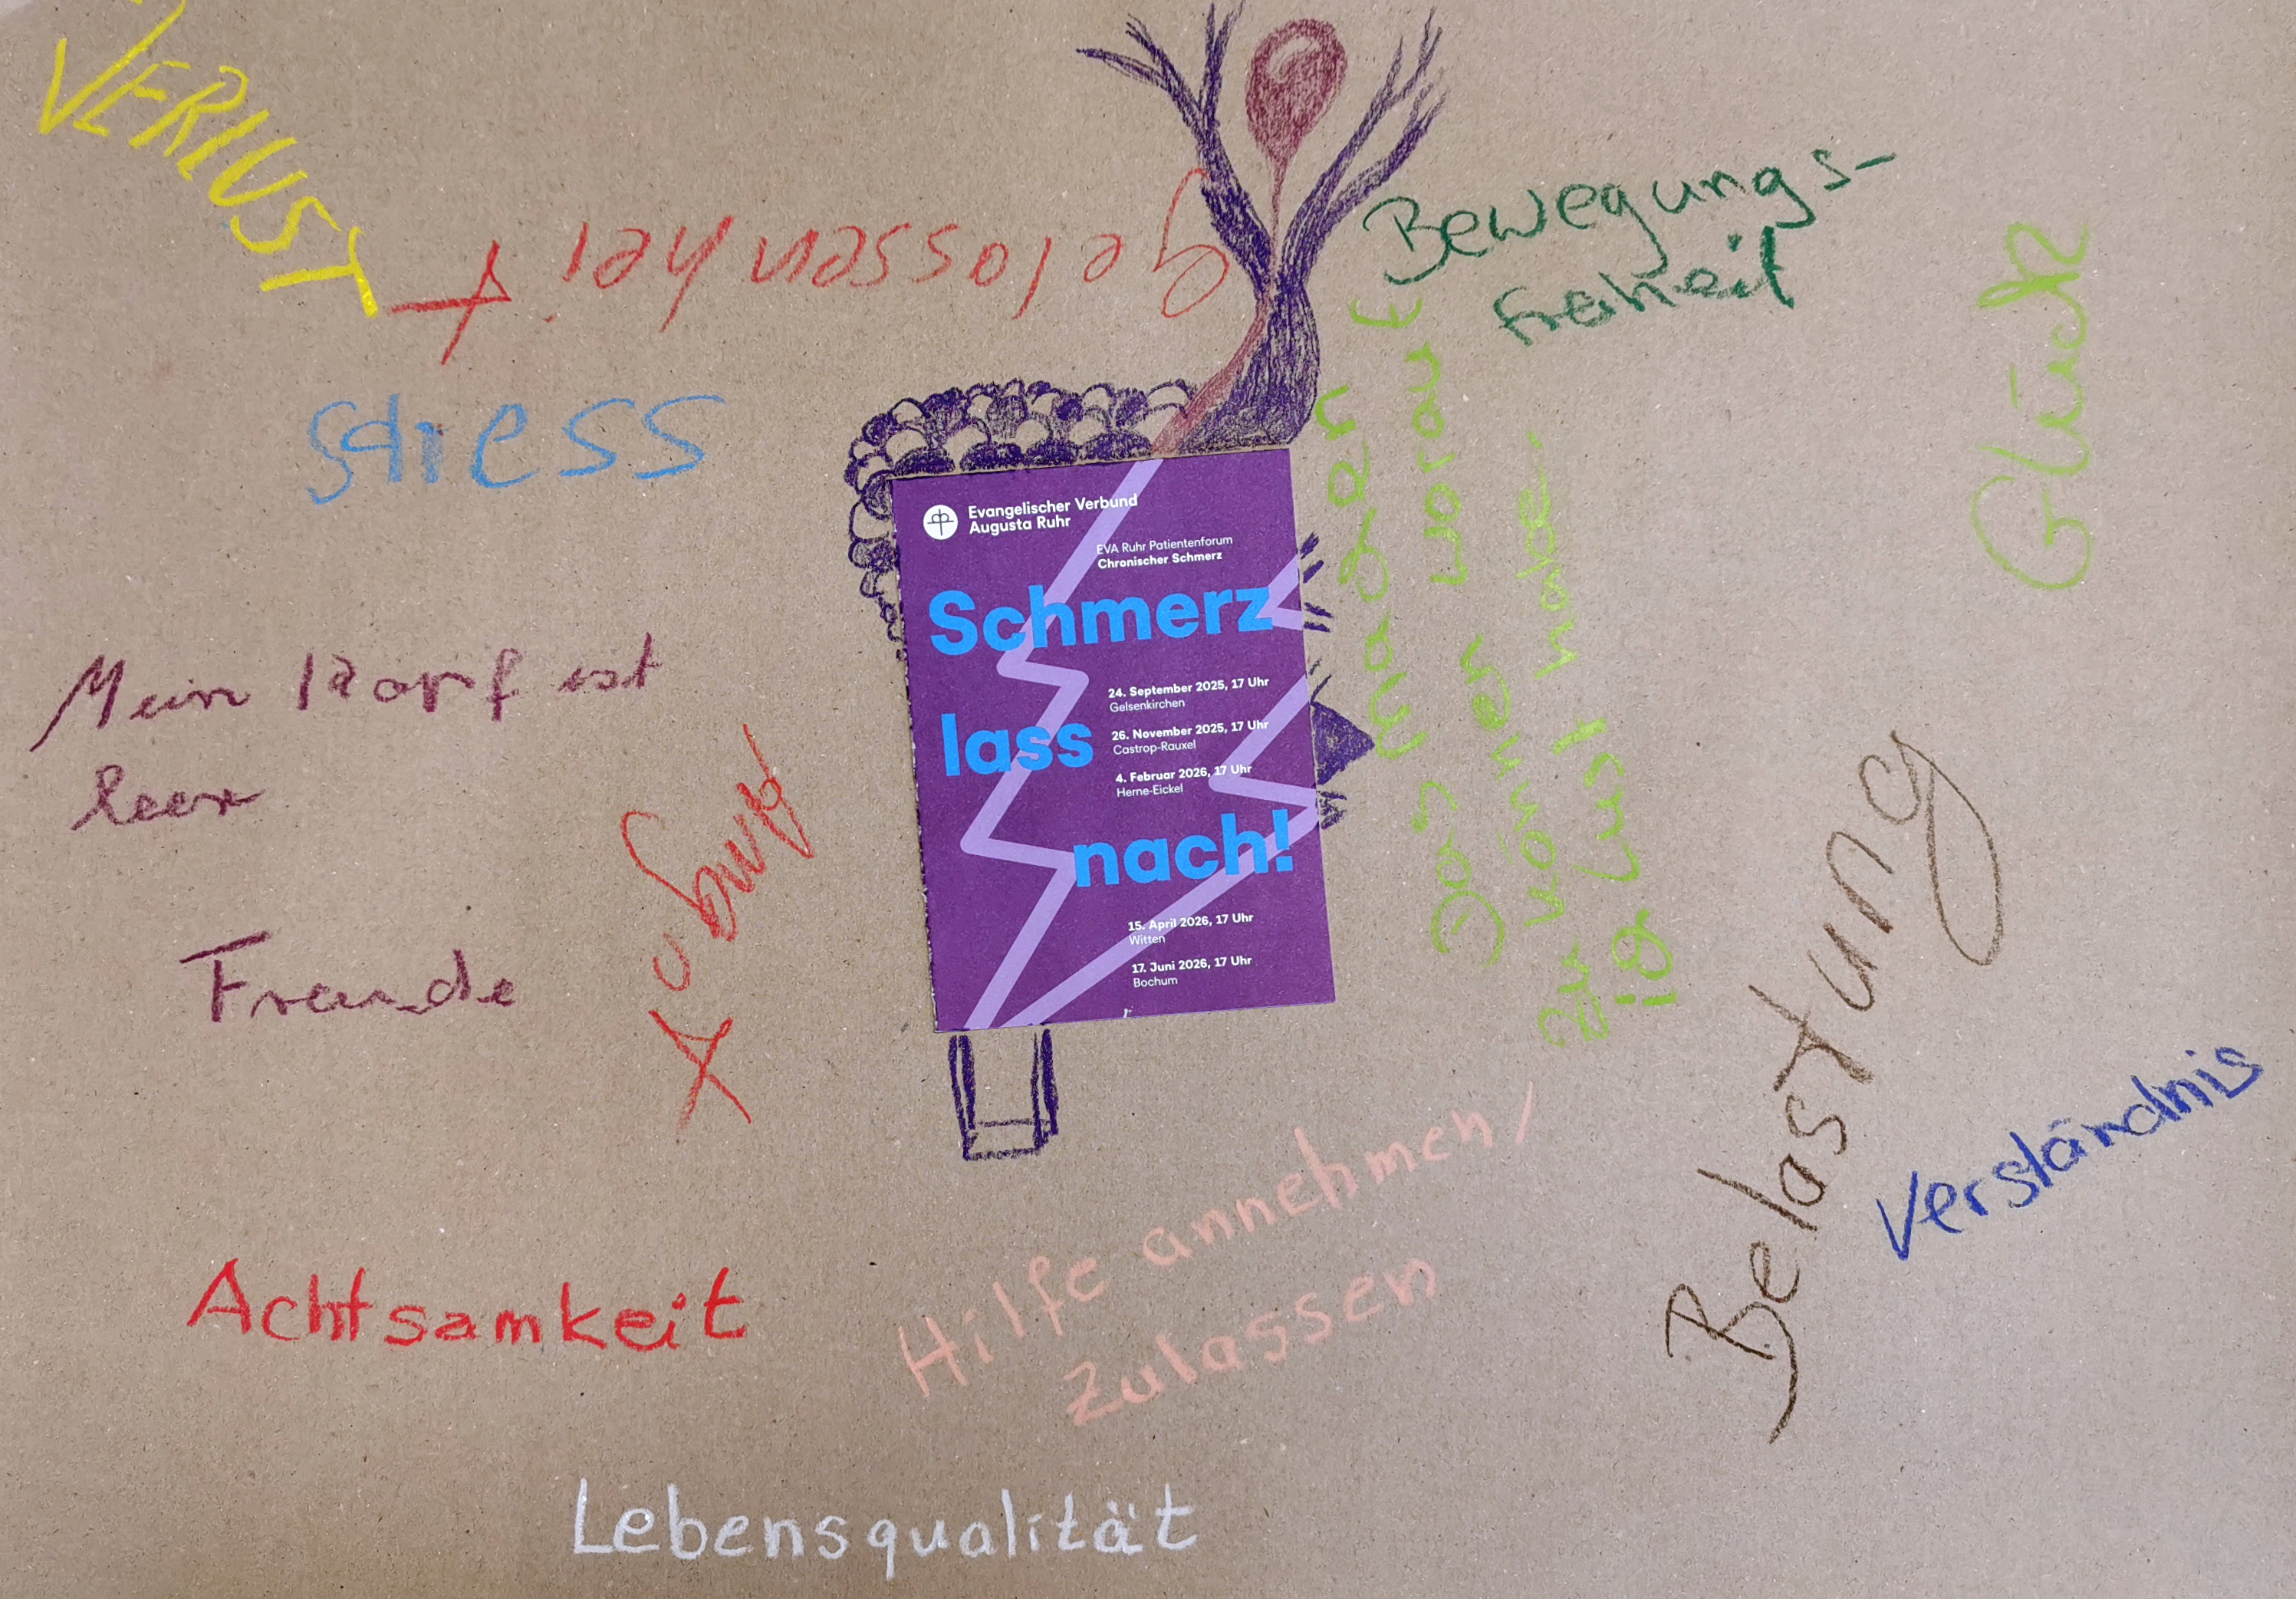 VERLUST
gelassenheit
Stress
Mein Kopf ist
leer
Freude
Achtsamkeit
Lebensqualität
Hilfe annehmen/
zulassen
Bewegungs-
freiheit
Glück
Das machen
zu können worauf
ig Lust habe.
Belastung
Verständnis
Evangelischer Verbund
Augusta Ruhr
EVA Ruhr Patientenforum
Chronischer Schmerz
Schmerz
lass
nach!
24. September 2025, 17 Uhr
Gelsenkirchen
26. November 2025, 17 Uhr
Castrop-Rauxel
4. Februar 2026, 17 Uhr
Herne-Eickel
15. April 2026, 17 Uhr
Witten
17. Juni 2026, 17 Uhr
Bochum